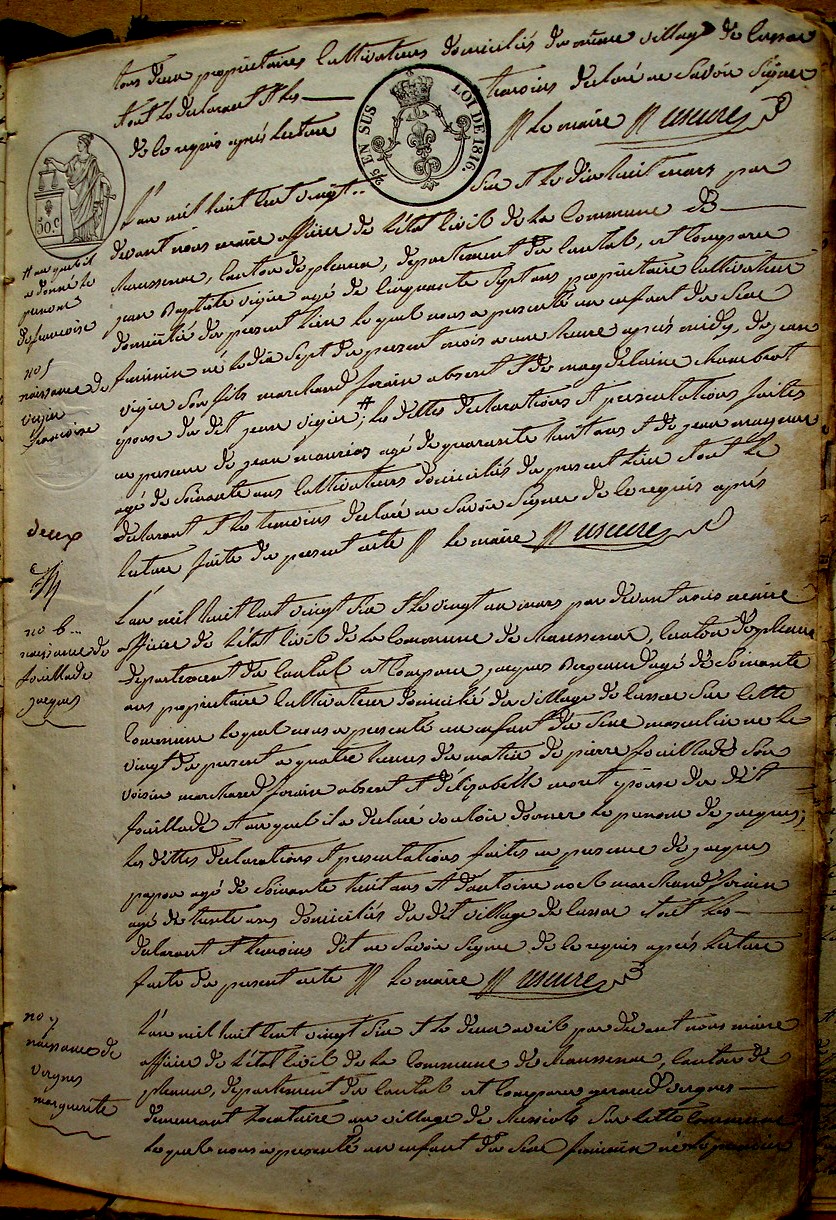 tous deux proprietaires Cultivateurs domiciliés du même village de Cussac
tout le declarant et les témoins declaré ne Savoir Signer
de ce requis après lecture // le maire //
25 EN SUS LOI DE 1816.
50.C
L'an mil huit cent vingt Six et le dix huit mars par
devant nous maire officier de l'état Civil de la Commune de
Chaussenac, Canton de pleaux, departement du Cantal, est Comparu
jean Baptiste vigier agé de Cinquante Sept ans propriétaire Cultivateur
domicilié du present lieu lequel nous a presenté un enfant du Sexe
feminin né le dix Sept du present mois a une heure après midy, de jean
vigier Son fils marchand forain absent et de magdelaine
epouse du dit jean vigier #, les dittes declarations et presentations faites
en presence de jean agé de quarante huit ans et de jean
agé de Soixante ans Cultivateurs domiciliés du present lieu tout le
declarant et les temoins declaré ne Savoir Signer de ce requis après
lecture faite du present acte // le maire //
# auquel il
a donné le
prenom
de francoise
no 5
naissance de
vigier
francoise
deux
L'an mil huit cent vingt Six et le vingt un mars par devant nous maire
officier de l'état Civil de la Commune de Chaussenac, Canton de pleaux
departement du Cantal est Comparu jacques agé de Soixante
ans propriétaire Cultivateur domicilié du village de Cussac Sur cette
Commune lequel nous a presenté un enfant du Sexe masculin né le
vingt du present a quatre heures du matin de pierre fouillade Son
voisin marchand forain absent et d'élizabeth epouse du dit
fouillade et auquel il a declaré vouloir donner le prenom de jacques;
les dittes declarations et presentations faites en presence de jacques
papon agé de Soixante huit ans et d'antoine marchand forain
agé de trente ans domiciliés du dit village de Cussac tout les
declarant et temoins dit ne Savoir Signer de ce requis après lecture
faite du present acte // le maire //
no 6
naissance de
fouillade
jacques
L'an mil huit cent vingt Six et le deux avril par devant nous maire
officier de l'état Civil de la Commune de Chaussenac, Canton de
pleaux, departement du Cantal est Comparu geraud vergnes
demeurant locataire au village de Sur cette Commune
lequel nous a presenté un enfant du Sexe feminin né le premier
no 7
naissance de
vergnes
marguerite